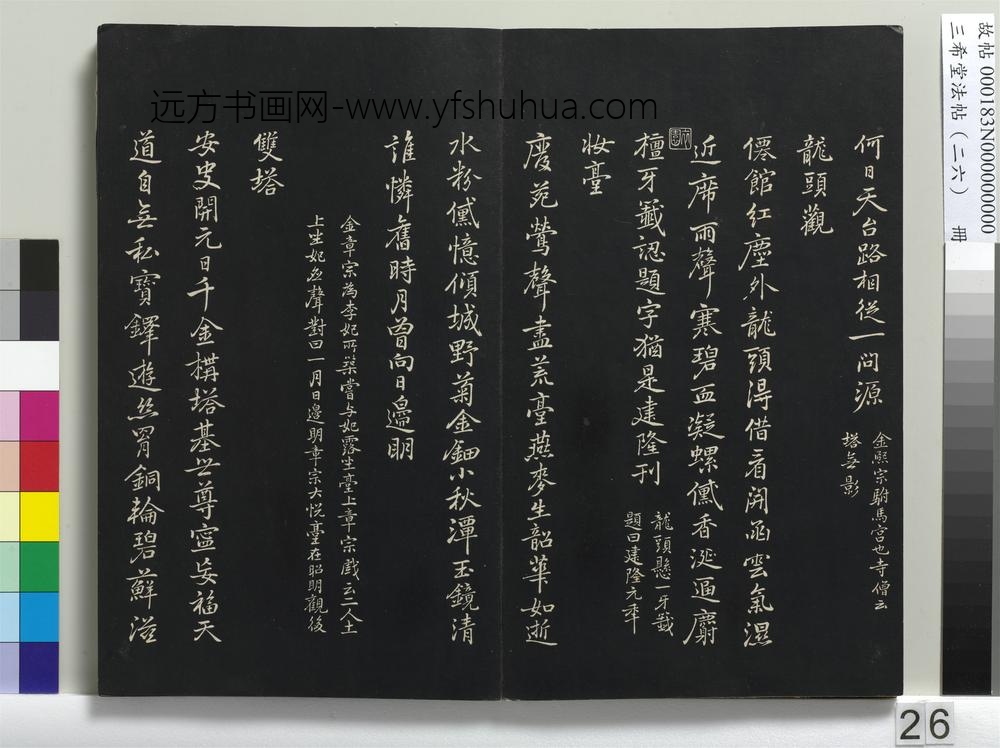 何日天台路相從一問源
金熙宗駙馬宮也寺僧云
塔無影
龍頭觀
僊館紅塵外龍頭得借看開函雲氣濕
近席雨聲寒碧血凝螺儻香涎逼麝
檀牙籤認題字猶是建隆刊
龍頭懸一牙籤
題曰建隆元年
妝臺
廢苑鶯聲盡荒臺燕麥生韶華如逝
水粉儻憶傾城野菊金鈿小秋潭玉鏡清
誰憐舊時月曾向日邊明
金章宗為李妃所築嘗与妃露坐臺上章宗戲云二人土
上坐妃應聲對曰一月日邊明章宗大悅臺在昭明觀後
雙塔
安史開元日千金構塔基世尊寧妄福天
道自無私寶鐸遊絲罥銅輪碧蘚滋
远方书画网-www.yfshuhua.com
故帖 000183N000000000
三希堂法帖（二六） 冊
26